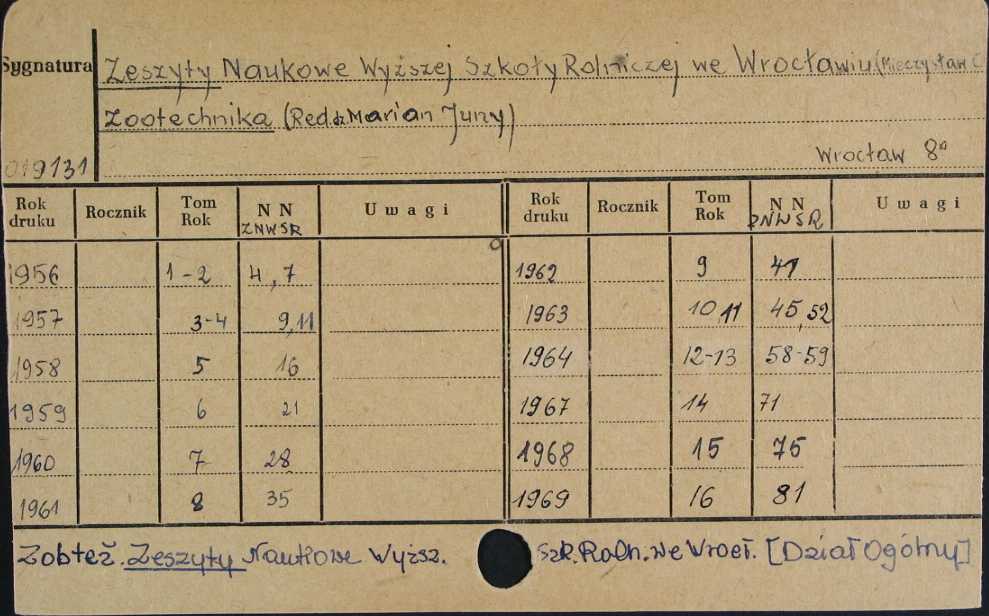 Sygnatura
Zeszyty Naukowe Wyższej Szkoły Rolniczej we Wrocławiu (Mieczysław
Zootechnika (Red. dz. Marian Juny)
019131
Wrocław 8°
Rok druku Rocznik Tom Rok NN ZNWSR Uwagi Rok druku Rocznik Tom Rok NN ZNWSR Uwagi
1956 1-2 4,7 1962 9 41
1957 3-4 9,11 1963 10,11 45,52
1958 5 16 1964 12-13 58-59
1959 6 21 1967 14 71
1960 7 28 1968 15 75
1961 8 35 1969 16 81
Zob też. Zeszyty Naukowe Wyższ. Szk. Roln. we Wrocł. [Dział Ogólny]